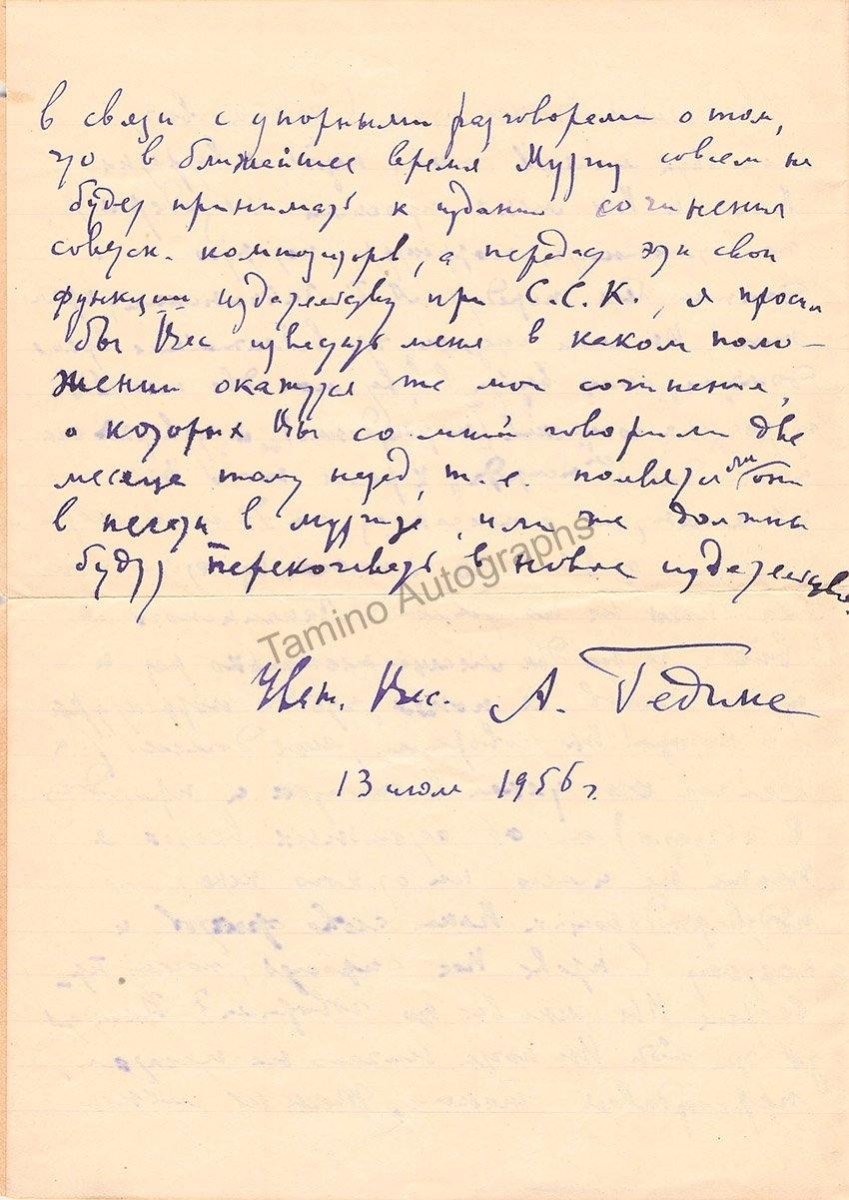 в связи с упорными разговорами о том,
что в ближайшее время Музгиз совсем не
будет принимать к изданию сочинения
советск. композиторов, а передаст эти свои
функции издательству при С.С.К., я просил
бы Вас известить меня в каком поло-
жении окажутся те мои сочинения,
о которых Вы со мной говорили две
месяца тому назад, т.е. появятся ли они
в печати в музгизе, или же должны
будут перекочевать в новое издательство.
Tamino Autographs
Уваж. Вас. А. Гедике
13 июля 1956 г.